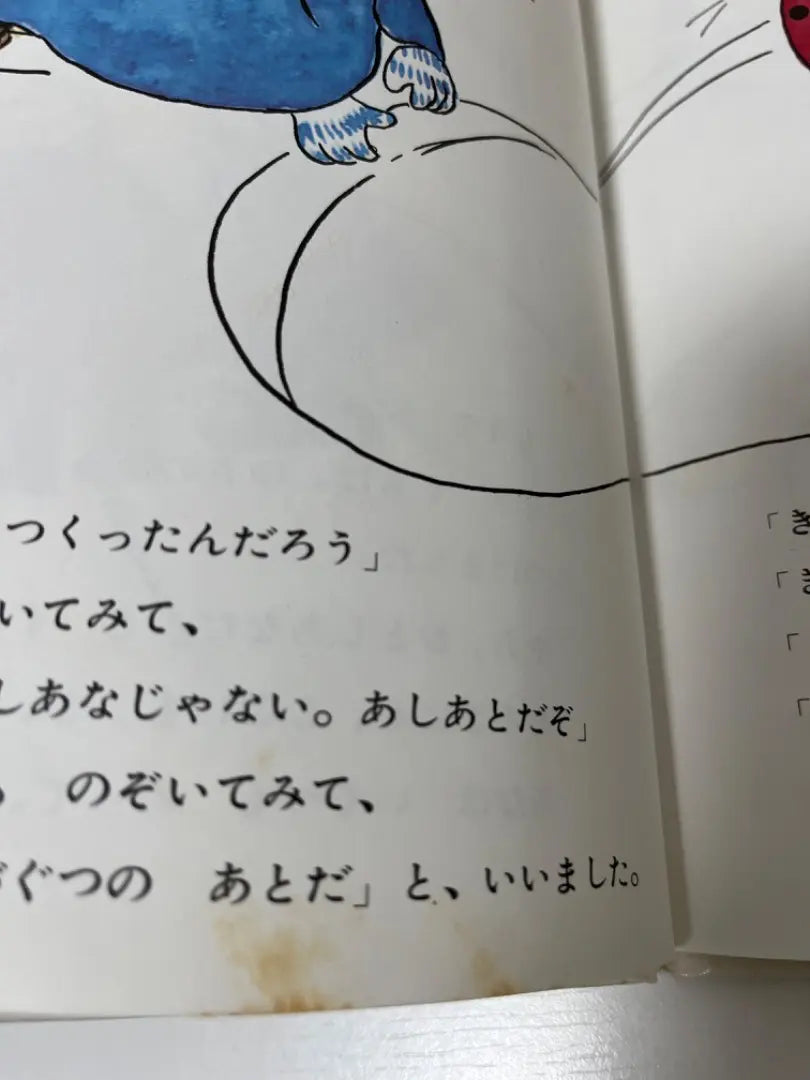 つくったんだろう」
いてみて、
しあなじゃない。あしあとだぞ」
のぞいてみて、
ぐつの　あとだ」と、いいました。
「き
「き
「
「